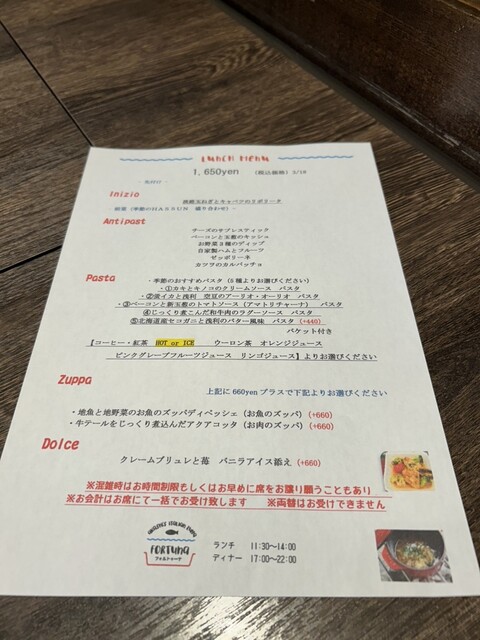 LUNCH MENU
1,650yen (税込価格) 5/19
- 先付け -
Inizio
淡路玉ねぎとキャベツのリボリータ
前菜 (季節のHASSUN 盛り合わせ) -
Antipast
チーズのサブレスティック
ベーコンと玉葱のキッシュ
お野菜3種のディップ
自家製ハムとフルーツ
ゼッポリーネ
カツヲのカルパッチョ
Pasta
・季節のおすすめパスタ (5種よりお選びください)
・①カキとキノコのクリームソース パスタ
・②蛍イカと浅利 空豆のアーリオ・オーリオ パスタ
・③ベーコンと新玉葱のトマトソース (アマトリチャーナ) パスタ
④じっくり煮こんだ和牛肉のラグーソース パスタ
⑤北海道産セコガニと浅利のバター風味 パスタ (+440)
バケット付き
【コーヒー・紅茶 HOT or ICE ウーロン茶 オレンジジュース
ピンクグレープフルーツジュース リンゴジュース】よりお選びください
Zuppa
上記に660yenプラスで下記よりお選びください
・地魚と地野菜のお魚のズッパディペッシェ (お魚のズッパ) (+660)
・牛テールをじっくり煮込んだアクアコッタ (お肉のズッパ) (+660)
Dolce
クレームブリュレと苺 バニラアイス添え (+660)
※混雑時はお時間制限もしくはお早めに席をお譲り願うこともあり
※お会計はお席にて一括でお受け致します ※両替はお受けできません
FORTUNA
フォルトゥーナ
ランチ 11:30~14:00
ディナー 17:00~22:00